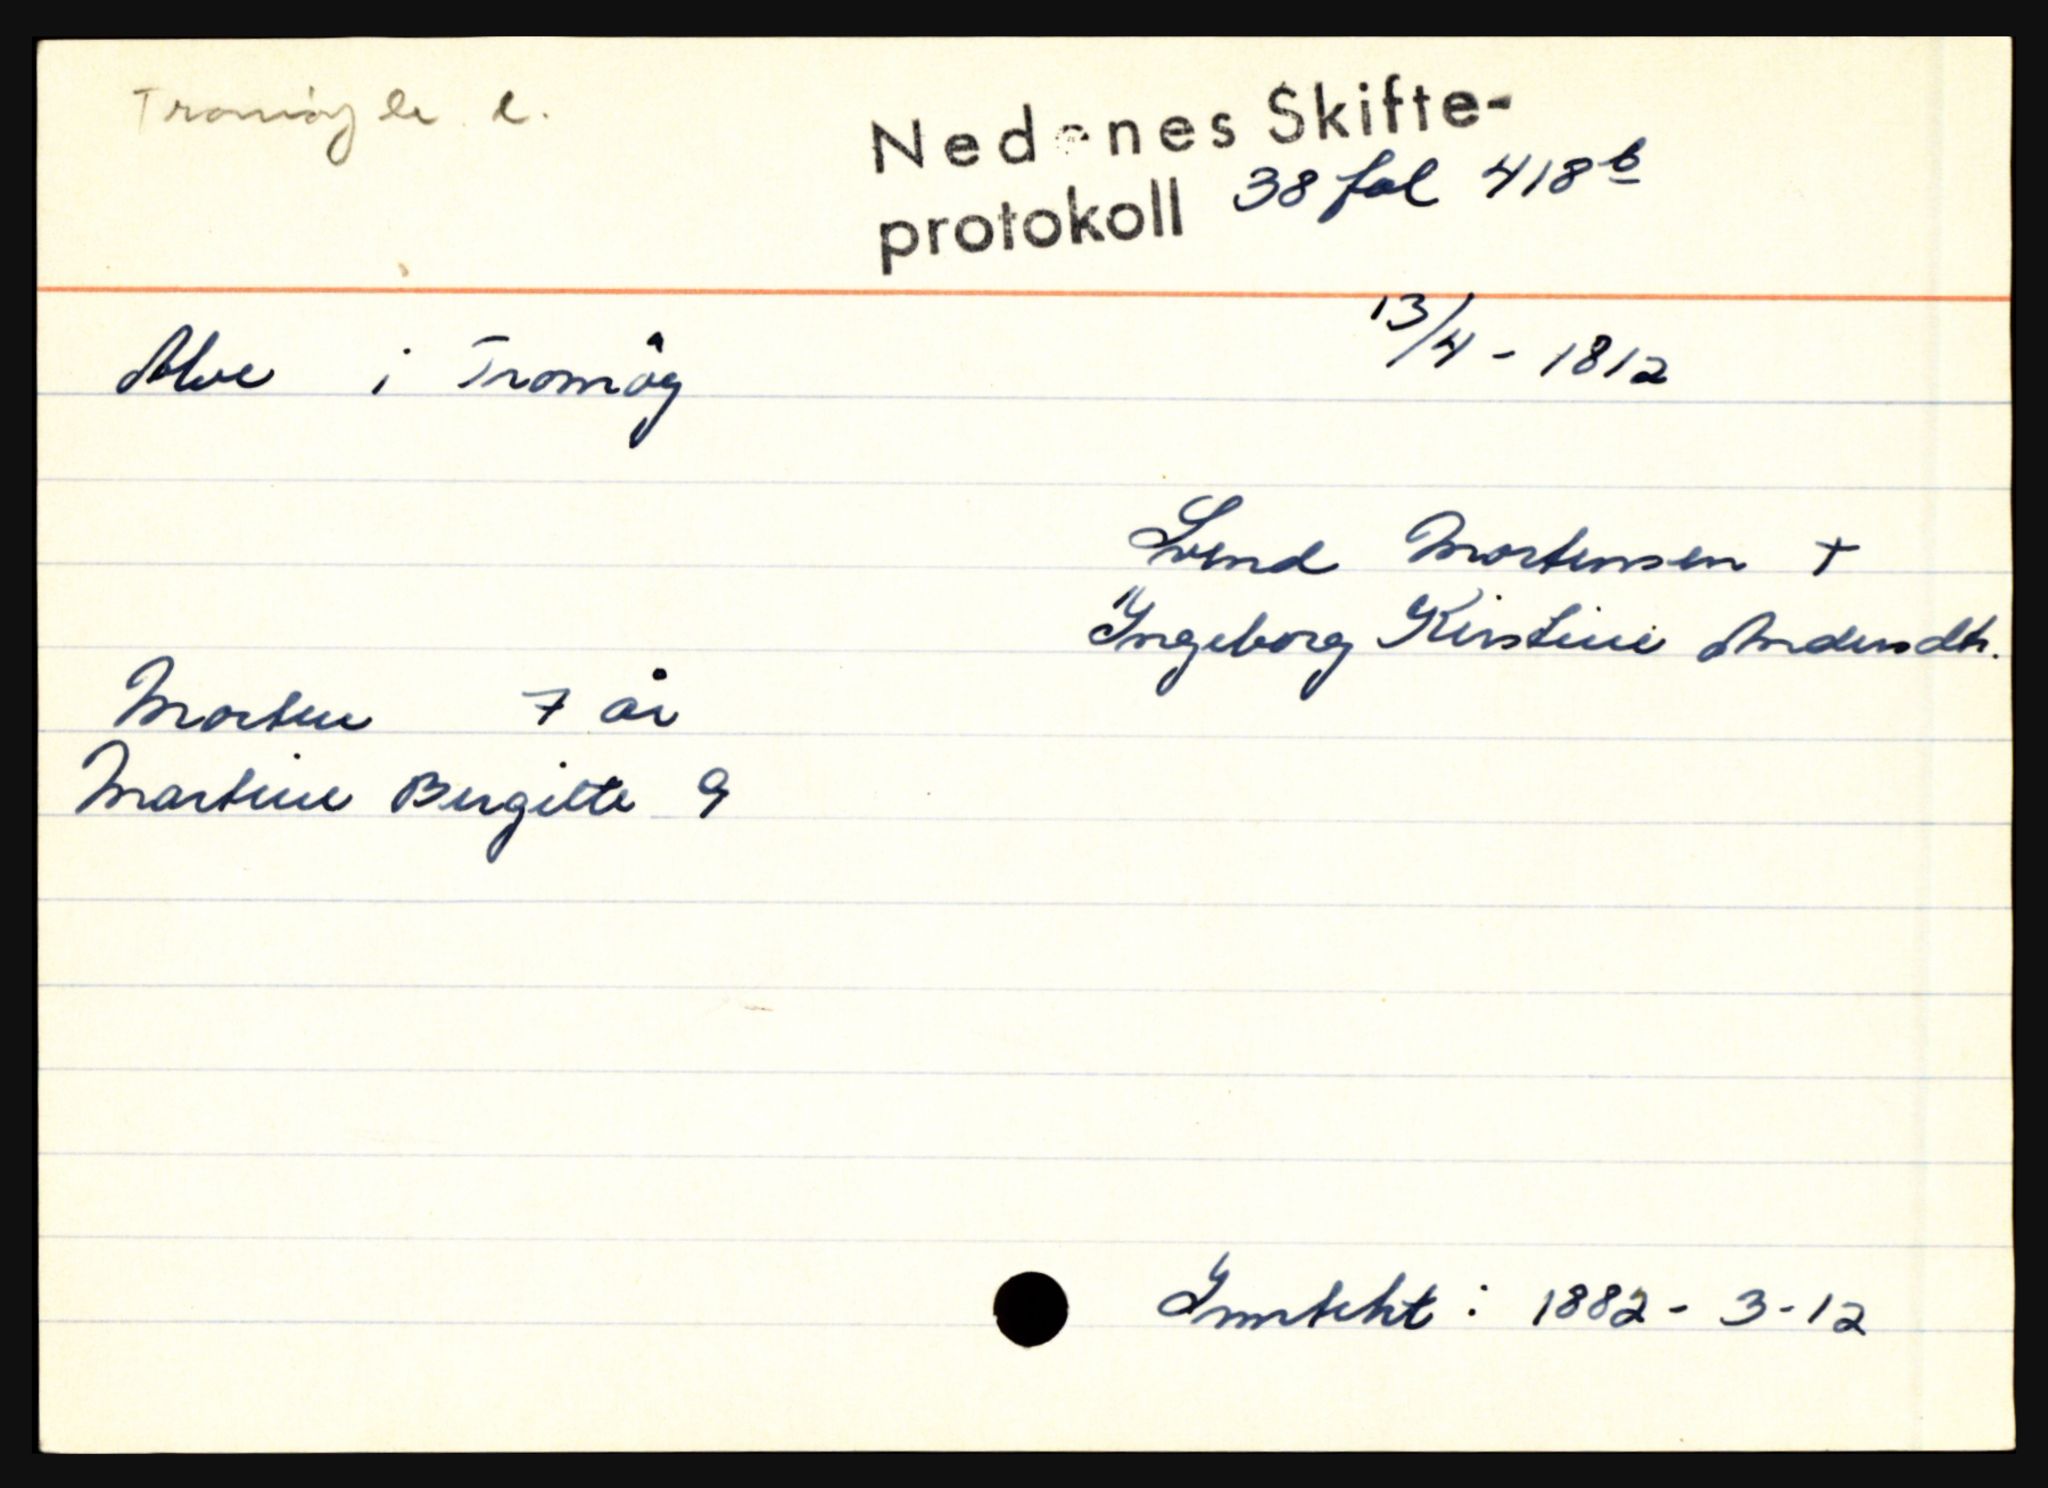 Tromöy l.
Nedenes Skifte-
protokoll 38 fol 418 b
13/4 - 1812
Alve i Tromöy
Svend Mortensen +
Ingeborg Kirstine Andersdtr.
Morten 7 år
Martine Bergitte 9
Inntekt : 1882 - 3 - 12